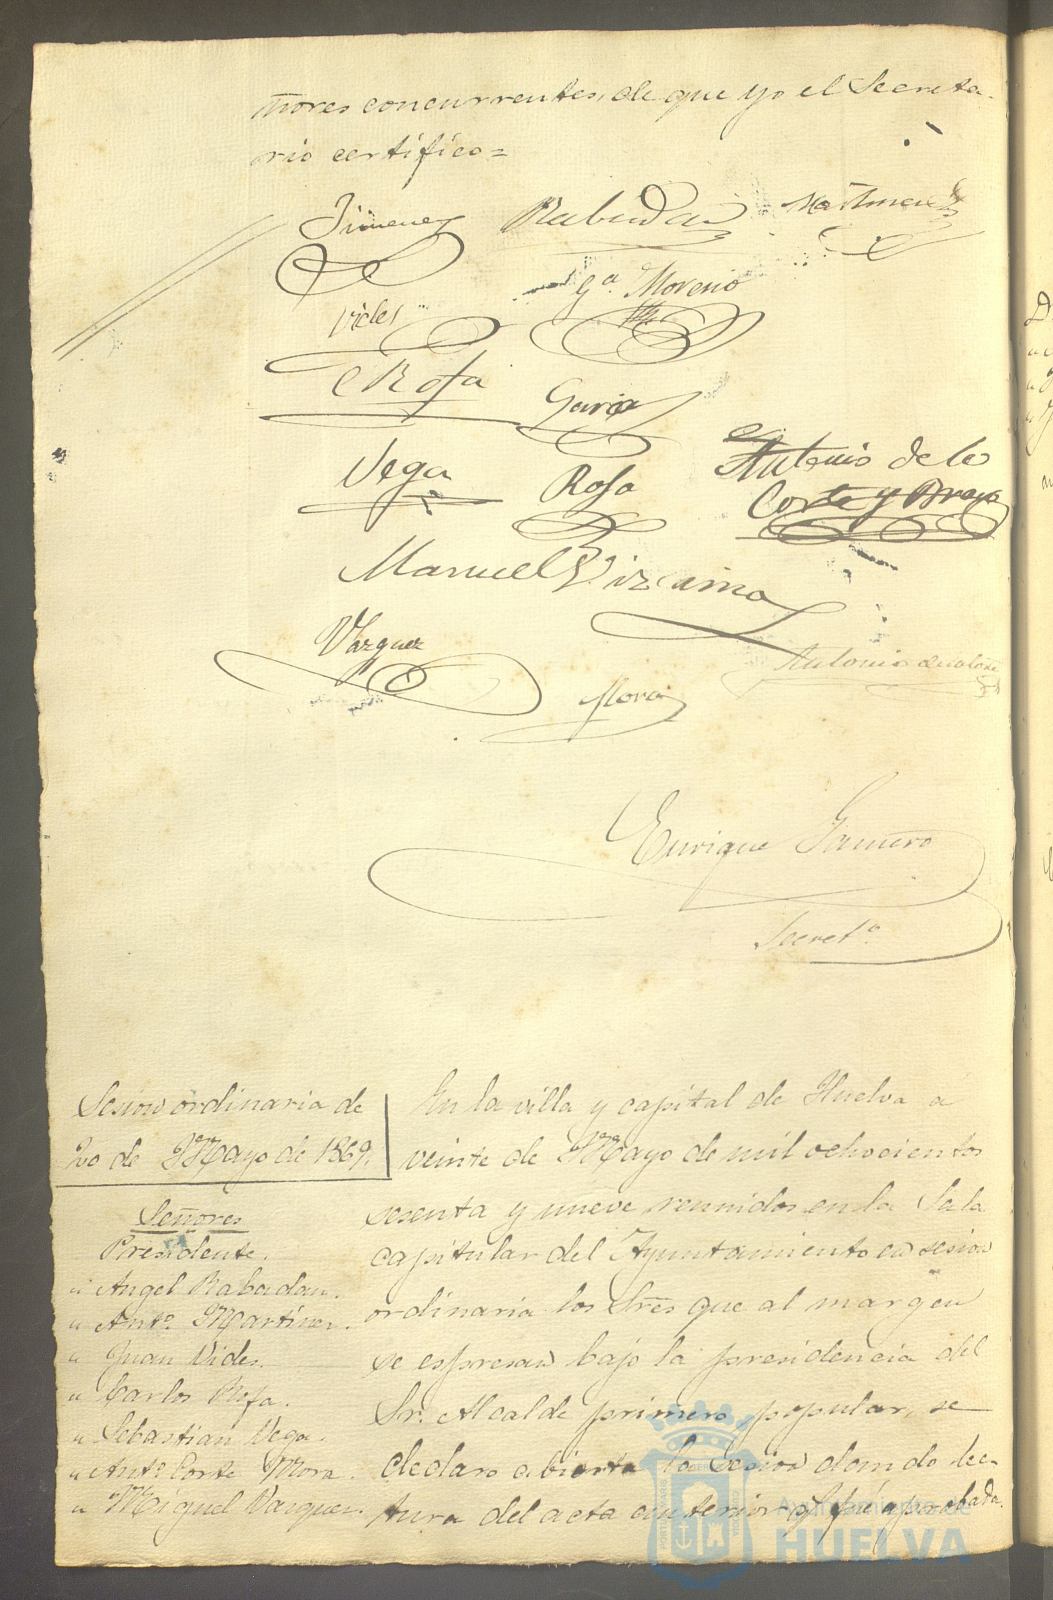 ñores concurrentes, de que yo el Secreta-
rio certifico=
Jimenez Rabadan Martinez
Vides Ga. Moreno
C Rofa Garcia
Vega Rofa Antonio de la
Corte y Bravo
Manuel Vizcaino
Vazquez Antonio
Mora
Enrique Gamero
Secreto.
Sesion ordinaria de
20 de Mayo de 1869.
Señores
Presidente.
" Angel Rabadan.
" Anto. Martinez.
" Juan Vides.
" Carlos Rofa.
" Sebastian Vega.
" Anto. Corte Mora.
" Miguel Vazquez.
En la villa y capital de Huelva a
veinte de Mayo de mil ochocientos
sesenta y nueve reunidos en la Sala
capitular del Ayuntamiento en sesion
ordinaria los Sres que al margen
se espresan bajo la presidencia del
Sr. Alcalde primero popular, se
declaro abierta la sesion dando lec-
tura del acta anterior y fué aprobada.
Ayuntamiento de
HUELVA